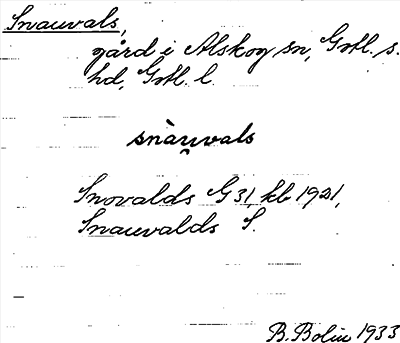 Snauvals,
gård i Alskog sn, Gotl. s.
hd, Gotl. l.
snàu̯vals
Snovalds G 31, kb 1921,
Snauvalds S.
B. Bolin 1933